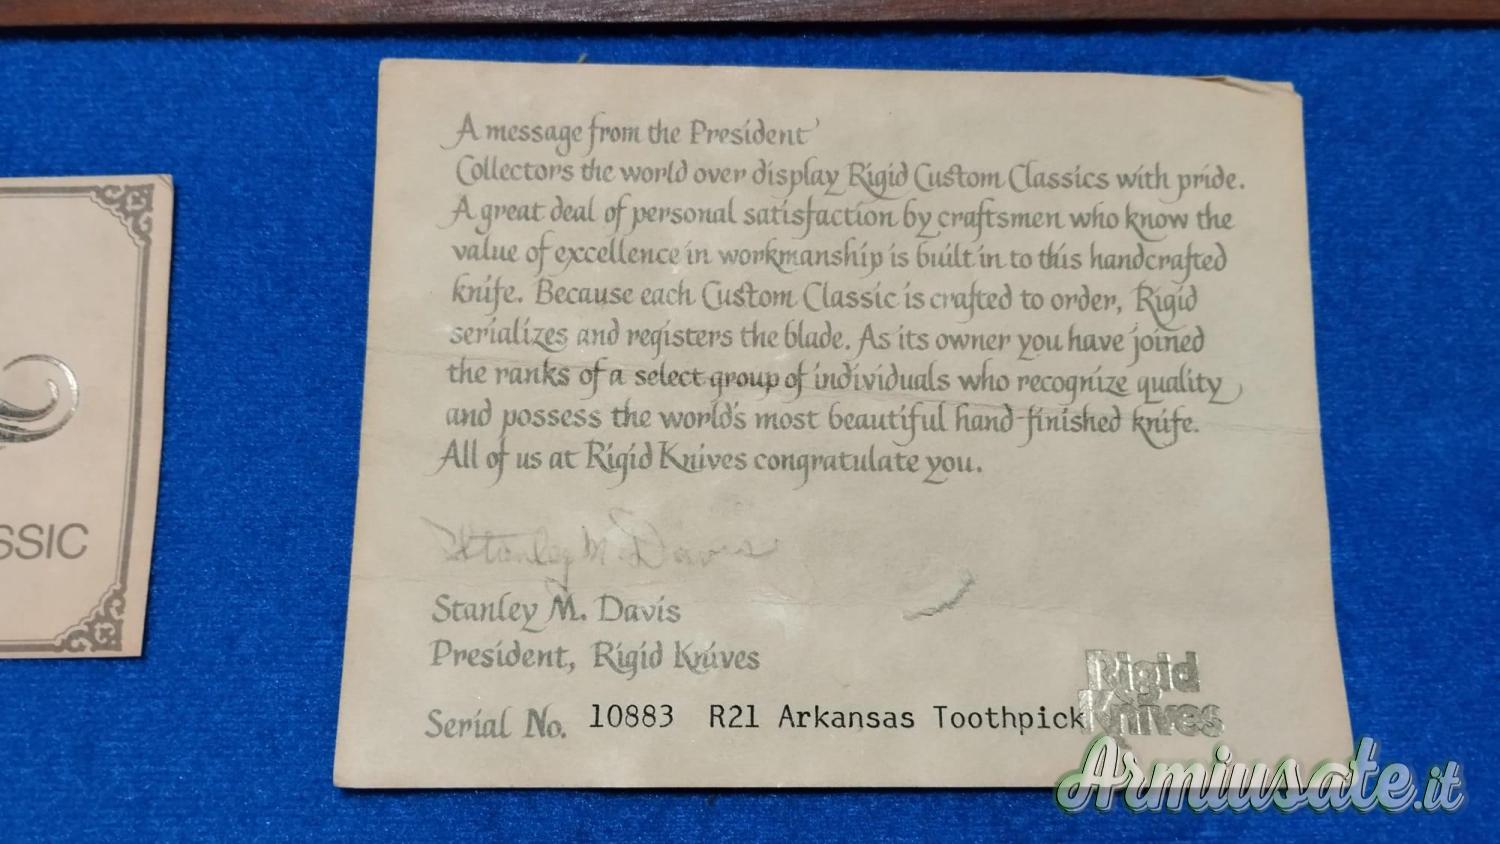 A message from the President
Collectors the world over display Rigid Custom Classics with pride.
A great deal of personal satisfaction by craftsmen who know the
value of excellence in workmanship is built in to this handcrafted
knife. Because each Custom Classic is crafted to order, Rigid
serializes and registers the blade. As its owner you have joined
the ranks of a select group of individuals who recognize quality
and possess the world's most beautiful hand-finished knife.
All of us at Rigid Knives congratulate you.
Stanley M. Davis
Stanley M. Davis
President, Rigid Knives
Serial No. 10883 R21 Arkansas Toothpick
Rigid
Knives
SSIC
Armiusate.it